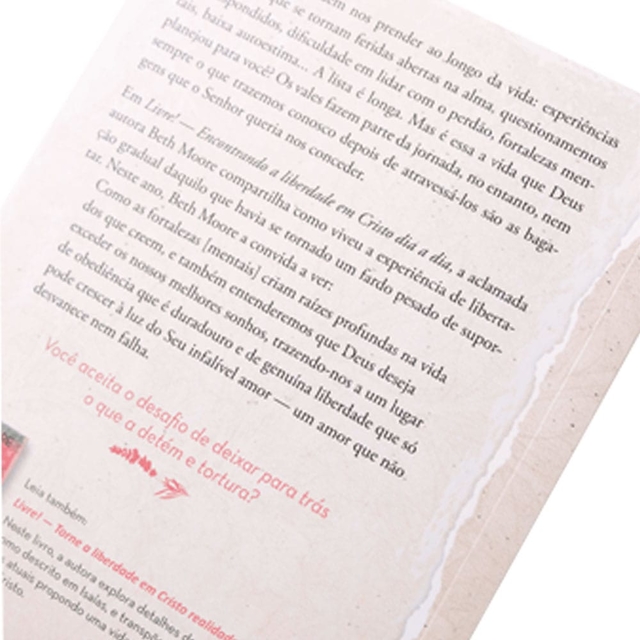 nos prender ao longo da vida: experiências
que se tornam feridas abertas na alma, questionamentos
pondidos, dificuldade em lidar com o perdão, fortalezas men-
tais, baixa autoestima... A lista é longa. Mas é essa a vida que Deus
planejou para você? Os vales fazem parte da jornada, no entanto, nem
sempre o que trazemos conosco depois de atravessá-los são as baga-
gens que o Senhor queria nos conceder.
Em Livre! — Encontrando a liberdade em Cristo dia a dia, a aclamada
autora Beth Moore compartilha como viveu a experiência de liberta-
ção gradual daquilo que havia se tornado um fardo pesado de supor-
tar. Neste ano, Beth Moore a convida a ver:
Como as fortalezas [mentais] criam raízes profundas na vida
dos que creem, e também entenderemos que Deus deseja
exceder os nossos melhores sonhos, trazendo-nos a um lugar
de obediência que é duradouro e de genuína liberdade que só
pode crescer à luz do Seu infalível amor — um amor que não
desvanece nem falha.
Você aceita o desafio de deixar para trás
o que a detém e tortura?
Leia também:
Livre! — Torne a liberdade em Cristo realidade
Neste livro, a autora explora detalhes de
descrito em Isaías, e
atuais propondo uma vida